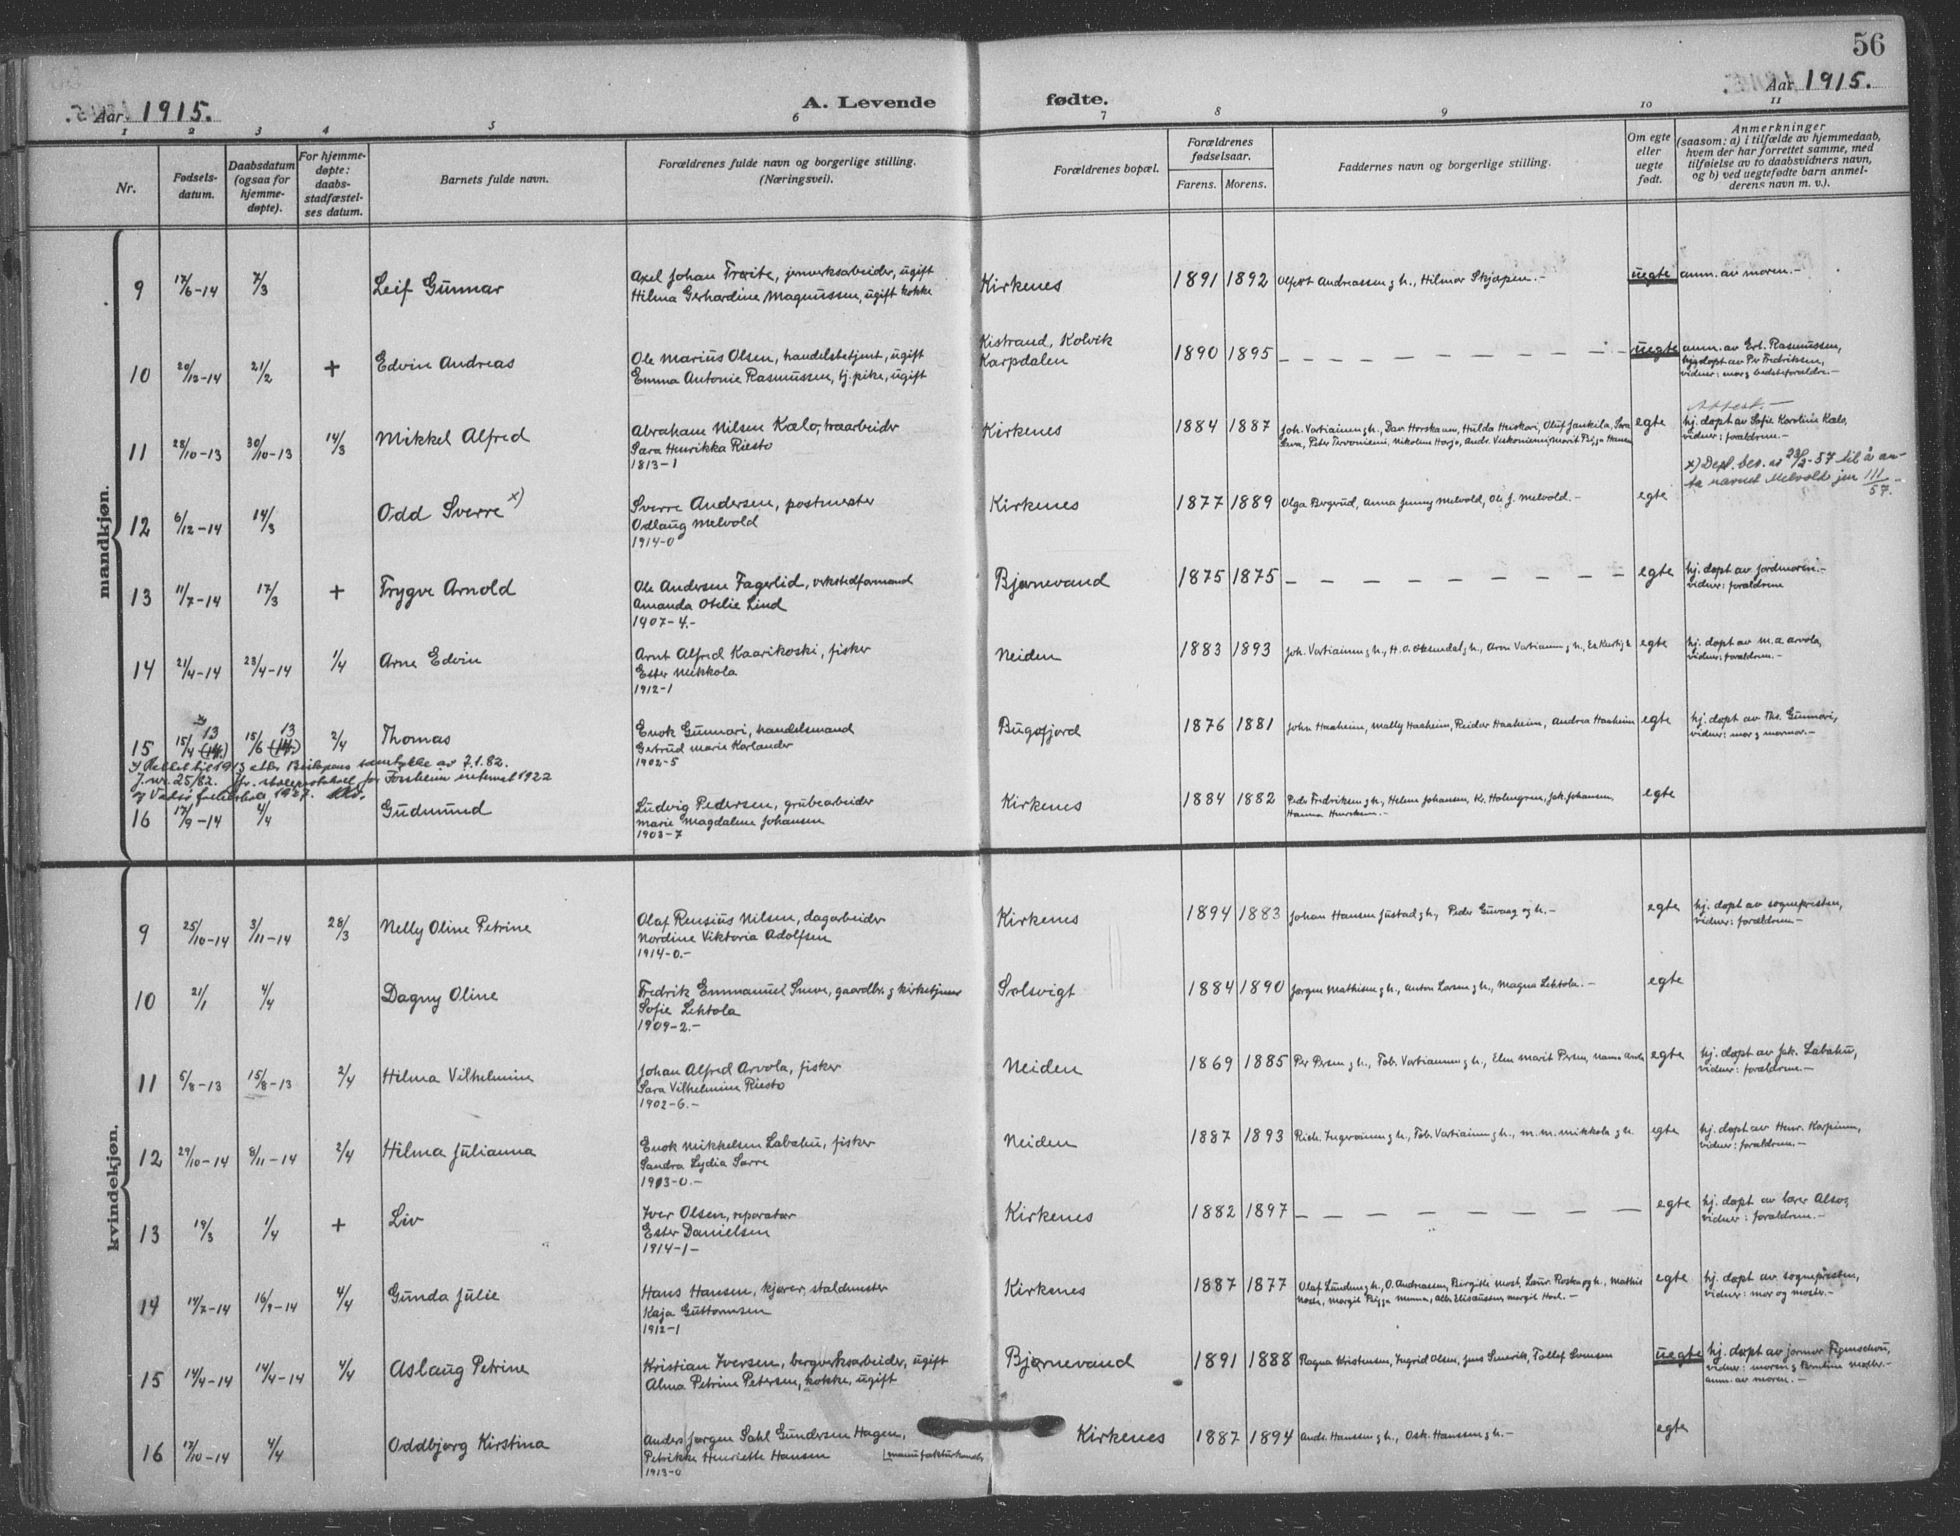 56
Aar 1915.
A. Levende fødte.
Aar 1915.
1 2 3 4 5 6 7 8 9 10 11
Nr.
Fødsels-
datum.
Daabsdatum
(ogsaa for
hjemme-
døpte).
For hjemme-
døpte:
daabs-
stadfæstel-
ses datum.
Barnets fulde navn.
Forældrenes fulde navn og borgerlige stilling.
(Næringsvei).
Forældrenes bopæl.
Forældrenes
fødselsaar.
Farens. Morens.
Faddernes navn og borgerlige stilling.
Om egte
eller
uegte
født.
Anmerkninger
(saasom: a) i tilfælde av hjemmedaab,
hvem der har forrettet samme, med
tilføielse av to daabsvidners navn,
og b) ved uegtefødte barn anmel-
derens navn m. v.).
mandkjøn.
9 17/6-14 7/3 Leif Gunnar
Axel Johan Træite, jernverksarbeider, ugift
Hilma Gerhardine Magnussen, ugift kokke
Kirkenes 1891 1892 Andreassen g h., Hilmar Skjøpen.- uegte anm. av moren.-
10 20/12-14 21/2 + Edvin Andreas
Ole Marius Olsen, handelsbetjent, ugift
Emma Antonie Rasmussen, tj. pike, ugift
Kistrand, Kolvik
Karpdalen
1890 1895 uegte
anm. av Erl. Rasmussen,
hj. døpt av Pr Fredriksen,
vidner: mor g bedsteforældre.-
Attest.-
11 28/10-13 30/10-13 14/3 Mikkel Alfred
Abraham Nilsen Kælo, traarbeider
Sara Henrikka Riesto
1813-1
Kirkenes 1884 1887
Joh. Vartiainen g h., Dan Horskaun, Hulda Huskari, Oluf Jankila, Sara
Peter Tervoniemi, Nikoline Harjo, Andr. Uskoniemi, Marit Pigga Hansen
egte
hj. døpt av Sofie Karoline Kælo,
vidner: forældrene.-
x) Depl. bev. av 23/2-57 til å an-
ta navnet Melvold jnr 111/57.-
12 6/12-14 14/3 Odd Sverre x)
Sverre Andersen, postmester
Odlaug Melvold
1914-0
Kirkenes 1877 1889 Olga Bergrud, Anna Jenny Melvold, Ole J. Melvold.- egte
13 11/7-14 17/3 + Trygve Arnold
Ole Andersen Fagerlid, verkstedformand
Amanda Otelie Lind
1907-4.-
Bjørnevand 1875 1875 egte
hj. døpt av jordmoren.-
vidner: forældrene
14 21/4-14 23/4-14 1/4 Arne Edvin
Arnt Alfred Kaarikoski, fisker
Ester Mikkola
1912-1
Neiden 1883 1893 Joh. Vartiainen g h., H. O. Oksendal g h., Aron Vartiainen g h., egte
hj. døpt av M. A. Arvola,
vidner: forældrene.-
15 15/4 13 (14.) 15/6 13 (14.) 2/4 Thomas
Enok Gunnari, handelsmand
Gertrud Marie Karlander
1902-5
Bugøfjord 1876 1881 John Haaheim, Mally Haaheim, Reidar Haaheim, Andrea Haaheim egte
hj. døpt av Ths. Gunnari,
vidner: mor g mormor.-
x) Rettet til 1913 etter Bispens samtykke av 7.1.82.
J.nr. 25/82. Jfr. skoleprotokoll for Forsheim internat 1922
og Vadsø folkeskole 1927.
16 17/9-14 4/4 Gudmund
Ludvig Pedersen, grubearbeider
Marie Magdalene Johansen
1903-7
Kirkenes 1884 1882
Peder Fredriksen g h., Helene Johansen, Kr. Holmgren, Jak. Johansen,
Hanna
egte
kvindekjøn.
9 25/10-14 3/11-14 28/3 Nelly Oline Petrine
Olaf Rensius Nilsen, dagarbeider
Nordine Viktoria Adolfsen
1914-0.-
Kirkenes 1894 1883 Johan Hansen Justad g h., Peder Guvaag og h.- egte
hj. døpt av sognepresten,
vidner: forældrene.-
10 21/1 4/4 Dagny Oline
Fredrik Emmanuel Sneve, gaardbr. g kirketjener
Sofie Lehtola
1909-2.-
Solsvigt 1884 1890 Jørgen Mathisen g h., Anton Larsen g h., Magna Lehtola.- egte
11 5/8-13 15/8-13 2/4 Hilma Vilhelmine
Johan Alfred Arvola, fisker
Sara Vilhelmine Riesto
1902-6.-
Neiden 1869 1885 Per Persen g h., Tob. Vartiainen g h., Elen Marit Persen, egte
hj. døpt av Jak. Labahu,
vidner: forældrene.-
12 29/10-14 8/11-14 2/4 Hilma Julianna
Enok Mikkelsen Labahu, fisker
Sandra Lydia Sarre
1913-0.-
Neiden 1887 1893 Rich. Ingeroinen g h., Tob. Vartiainen g h., M. M. Mikkola g h. egte
hj. døpt av Henr. Karpinen,
vidner: forældrene.-
13 19/3 1/4 + Liv
Iver Olsen, reparatør
Ester Danielsen
1914-1-
Kirkenes 1882 1897 egte
hj. døpt av lærer Alsos,
vidner: forældrene.-
14 14/7-14 16/9-14 4/4 Gunda Julie
Hans Hansen, kjører, staldmester
Kaja Guttormsen
1912-1
Kirkenes 1887 1877
Olaf Lunden g h., O. Andreassen, Bergitte Most, Laur. Roska og h., Mathis
egte
hj. døpt av sognepresten,
vidner: mor og moster.-
15 14/4-14 14/4-14 4/4 Aslaug Petrine
Kristian Iversen, bergverksarbeider, ugift
Alma Petrine Petersen, kokke, ugift
Bjørnevand 1891 1888 Ragna Kristensen, Ingrid Olsen, Jens Smevik, Tollef Svensen uegte
hj. døpt av jormor Figenschou,
vidner: moren g Berntine Moster.-
anm. av moren.-
16 17/10-14 4/4 Oddbjørg Kirstina
Anders Jørgen Dahl Gundersen Hagen,
Petrikke Henriette Hansen [manufakturhandl.
1913-0
Kirkenes 1887 1894 Andr. Hanssen g h., Osk. Hanssen g h.- egte